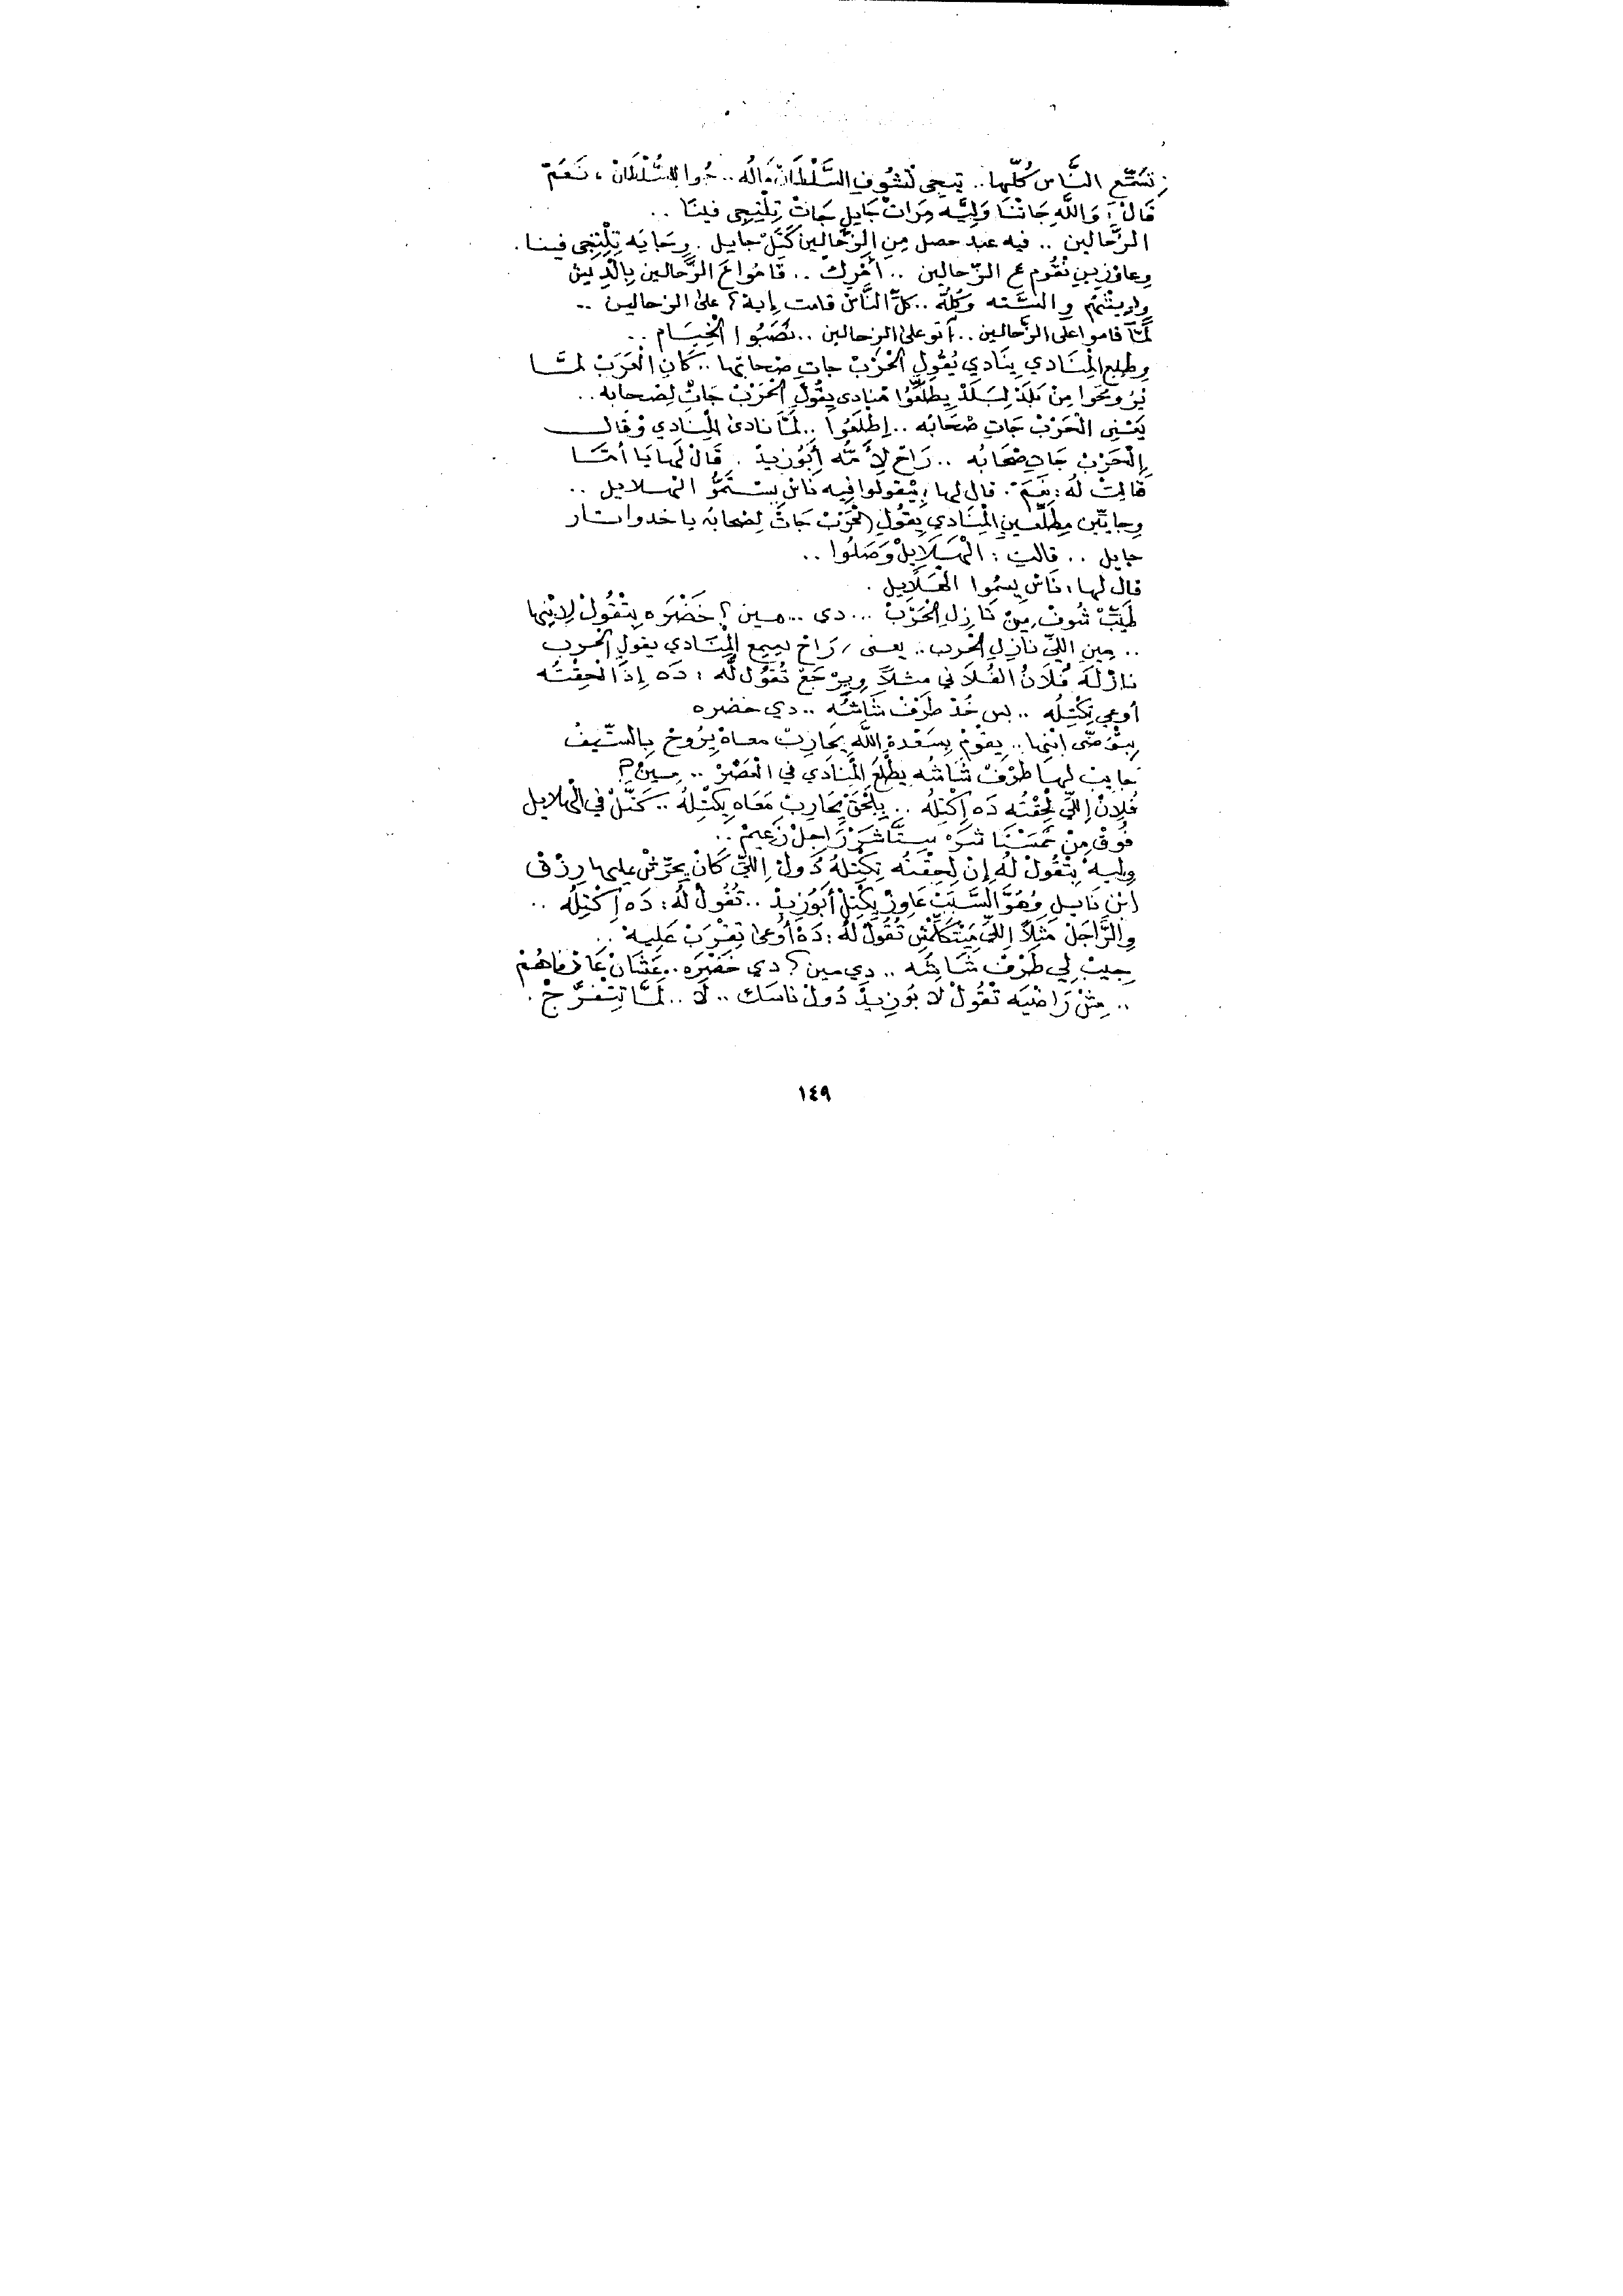 تسَمَّع النَّاس كُلّها.. تيجى تْشُوفِ السَّلْطَانْ مَالُه.. جُوا لِلسُّلْطَانْ، نَعَمْ
قَالْ: وَاللَّهِ جَاتْنَا وَلِيَّه مِرَاتْ جَايِلِ جَاتْ تِلْتِجِى فينَا ..
الزَّحالين .. فيه عبد حصل مِنِ الزَّحَّالينْ كَتَلْ جايل . وِجَايَه تِلْتِجِى فينا .
وِعاوْزِينِ نْقُوم عَ الزّحالين .. أَمْرِكْ .. قَامُوا عَ الزَّحَالين بِالْدِيش
وِلَّمَّا قاموا على الزَّحالين .. أَتو على الزحالين .. نَصَبُوا الْخِيَام ..
وِطلِع الْمِنَادي يِنَادي يُقُولِ الْحَرْبْ جاتِ صْحابتها .. كَانِ الْعَرَبْ لمَّا
يْرُوحُوا مِنْ بَلَدْ لِبَلَدْ يِطَلَّعُوا مْنادى يِقُولِ الْحَرْبْ جَاتْ لِصْحابه ..
يَعْنِى الْحَرْبْ جَاتِ صْحَابُه .. إِطْلَعُوا .. لَمَّا نادىٰ الْمِنادي وْقال
اِلْحَرْبْ جَاتِ صْحَابُه .. رَاحْ لِأُمُّه أَبُوزيدْ . قَالْ لَها يَا أُمَّا
قَالِتْ لُه: نِعَمْ . قال لها، بْيقولوا فِيه نَاسْ يِسَّمُّوا الْهلايل ..
وِجايّين مِطَلَّعين الْمِنَادِي يِقُولِ الْحَرْبْ جَاتْ لِصْحابُه ياخدوا تار
جايل .. قالت : الْهَلَايِلْ وَصَلُوا ..
قال لها، نَاسْ يِسمُوا الْهَلَايِل .
طَيِّبْ شُوفْ مِينْ نَازِلِ الْحَرْبْ ... دى .. مين؟ خَضْرَه بِتْقُولْ لِابْنِها
.. مِين اللِّى نَازِل الْحرب .. يعنى، رَاحْ يسمع الْمِنَادي يقولِ الْحرب
نازْلَه فُلَانُ الفُلَانِى مثلاً وِيِرْجَعْ تُقُول لُه : دَه إِذَا لْحِقْتُه
أوعى تِكْتِلُه .. بس خُدْ طَرَفْ شَاشُه .. دي خضره
بِتْوَصِّى ابْنِها .. يِقُومْ بِسَعْدةِ اللَّه يْحَارِبْ معاهْ يِرُوحْ بِالسّيفْ
جايِبْ لها طَرَفْ شَاشُه يطْلَعِ الْمِنَادي في الْعَصْرْ .. مِينْ؟
فُلانْ إِللّى لْحِقْتُه دَه اِكْتِلُه .. يِلْحَقْ يْحَارِبْ مَعَاه يِكْتِلُه .. كَتَّلْ في الْهلايل
فُوقْ مِنْ خَمَسْتَاشَرْ سِتَّاشَرْ رَاجِلْ زَعِيمْ ..
وِليهْ بِتْقُولْ لُه إِنْ لِحِقْتُه تِكْتِلُه دُولْ اِللِّى كَانْ يحَرّشْ عليها رِزْق
اِبْنِ نَايِل وْهُوَّ السَّبَبْ عَاوِزْ يِكْتِلْ أَبُوزِيدْ .. تُقُولْ لُه: دَه اِكْتِلُه ..
وِالرَّاجَلْ مَثَلاً اِللِّى مَيِتْكَلِّمْشِ تْقُولْ لُه : دَهْ أُوعىٰ تِقْرَبْ عَلِيهْ ..
جِيبْ لِي طَرَفْ شَاشُه .. دِي مين؟ دي خَضْرَه .. عَشَانْ عَارْفَاهُمْ
.. مِشْ رَاضْيَه تْقُولْ لَابُوزِيدْ دُولْ نَاسَك .. لَا .. لَمَّا تِتْفرَّجْ .
١٤٩